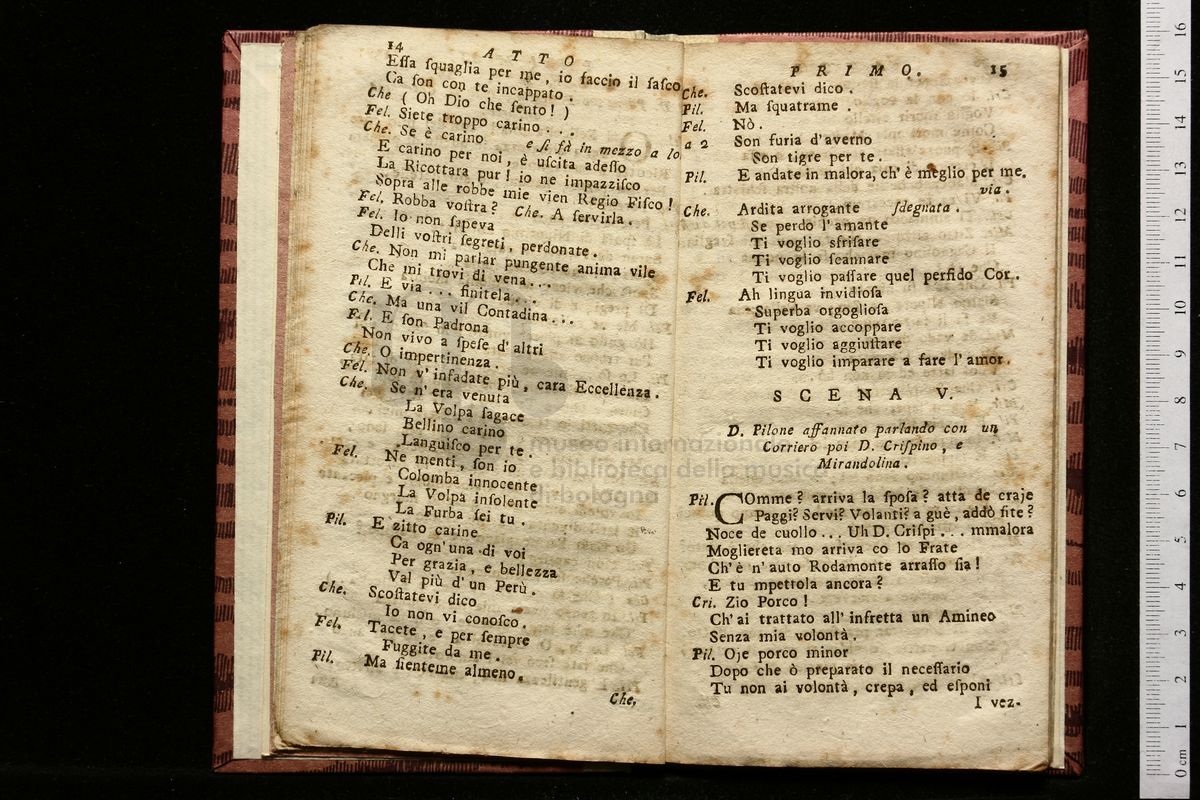 14 ATTO
Eſſa ſquaglia per me, io faccio il faſco
Ca ſon con te incappato.
Che ( Oh Dio che ſento! )
Fel. Siete troppo carino . . .
Che. Se è carino e ſi fà in mezzo a lo
E carino per noi, è uſcita adeſſo
La Ricottara pur! io ne impazziſco
Sopra alle robbe mie vien Regio Fiſco!
Fel. Robba voſtra? Che. A ſervirla.
Fel. Io non ſapeva
Delli voſtri ſegreti, perdonate.
Che. Non mi parlar pungente anima vile
Che mi trovi di vena . . .
Pil. E via . . . finitela . . .
Che. Ma una vil Contadina . . .
Fel. E ſon Padrona
Non vivo a ſpeſe d'altri
Che. O impertinenza.
Fel. Non v'infadate più, cara Eccellenza.
Che. Se n'era venuta
La Volpa ſagace
Bellino carino
Languiſco per te.
Fel. Ne menti, ſon io
Colomba innocente
La Volpa inſolente
La Furba ſei tu.
Pil. E zitto carine
Ca ogn'una di voi
Per grazia, e bellezza
Val più d'un Perù.
Che. Scoſtatevi dico
Io non vi conoſco.
Fel. Tacete, e per ſempre
Fuggite da me.
Pil. Ma ſienteme almeno.
Che.
PRIMO. 15
Che. Scoſtatevi dico.
Pil. Ma ſquatrame.
Fel. Nò.
a 2 Son furia d'averno
Son tigre per te.
Pil. E andate in malora, ch'è meglio per me.
via.
Che. Ardita arrogante ſdegnata.
Se perdo l'amante
Ti voglio sfriſare
Ti voglio ſcannare
Ti voglio paſſare quel perfido Cor..
Fel. Ah lingua invidioſa
Superba orgoglioſa
Ti voglio accoppare
Ti voglio aggiuſtare
Ti voglio imparare a fare l'amor.
SCENA V.
D. Pilone affannato parlando con un
Corriero poi D. Criſpino, e
Mirandolina.
Pil. COmme? arriva la ſpoſa? atta de craje
Paggi? Servi? Volanti? a guè, addò ſite?
Noce de cuollo . . . Uh D. Criſpi . . . mmalora
Mogliereta mo arriva co lo Frate
Ch'è n'auto Rodamonte arraſſo ſia!
E tu mpettola ancora?
Cri. Zio Porco!
Ch'ai trattato all'infretta un Amineo
Senza mia volontà.
Pil. Oje porco minor
Dopo che ò preparato il neceſſario
Tu non ai volontà, crepa, ed eſponi
I vez-
museo internazionale
e biblioteca della musica
di bologna
0 cm 1 2 3 4 5 6 7 8 9 10 11 12 13 14 15 16